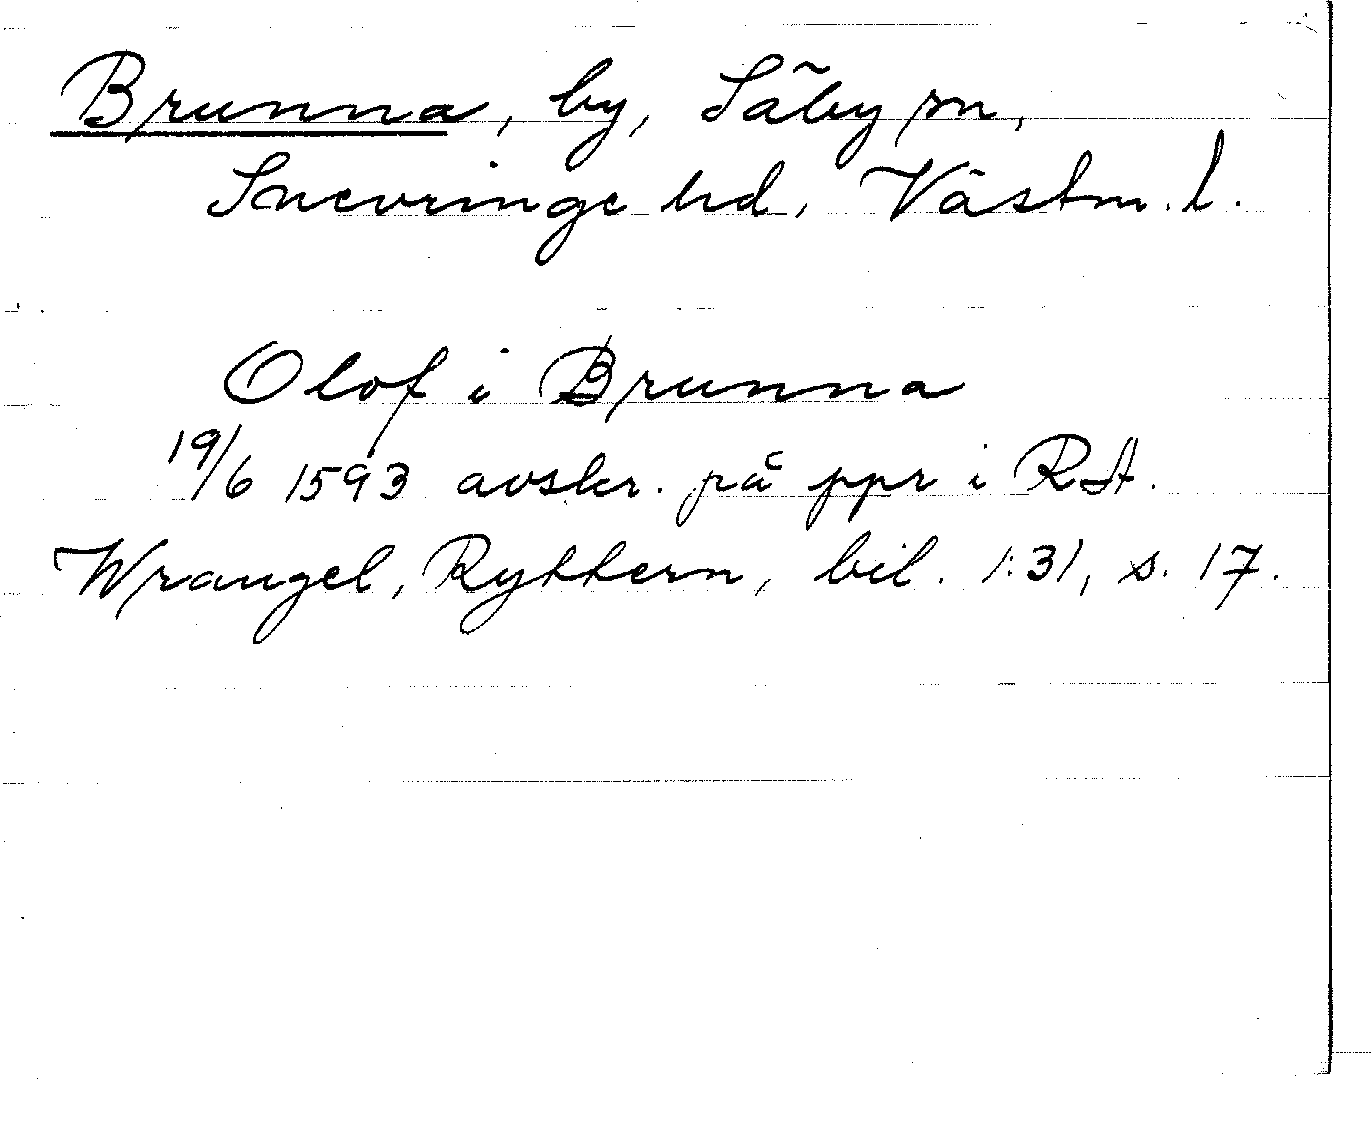 Brunna, by, Säby sn,
Snevringe hd, Västm. l.
Olof i Brunna
19/6 1593 avskr. på ppr i RA.
Wrangel, Rytterne, bil. 1:31, s. 17.